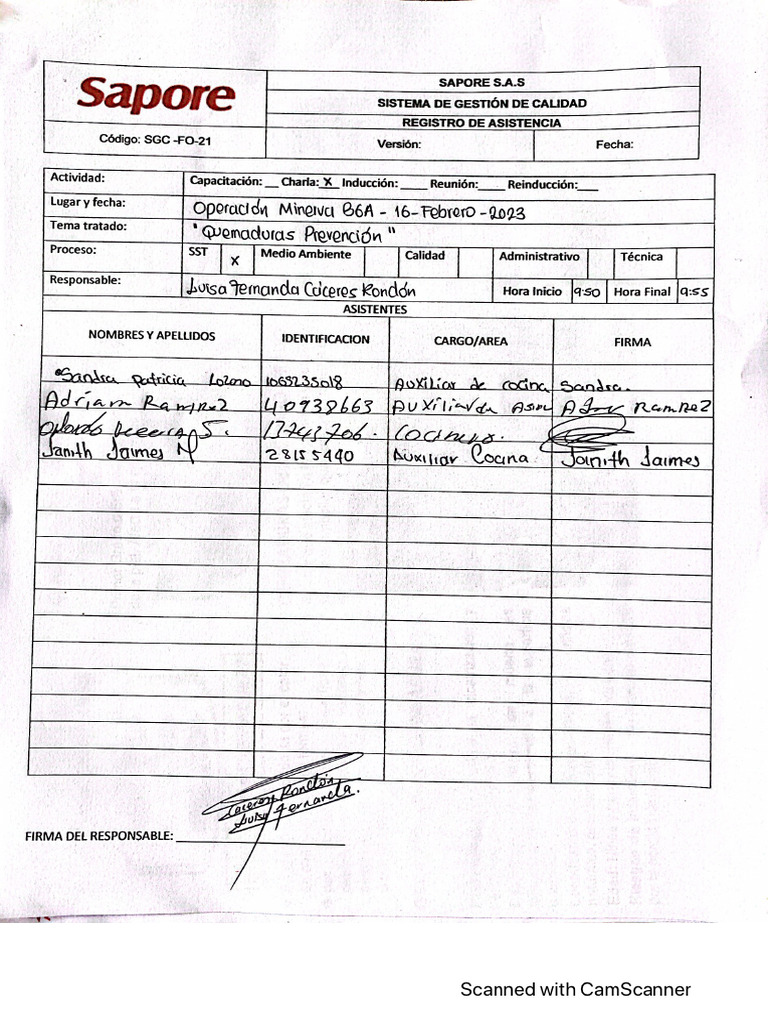 Sapore
SAPORE S.A.S
SISTEMA DE GESTIÓN DE CALIDAD
REGISTRO DE ASISTENCIA
Código: SGC -FO-21
Versión:
Fecha:
Actividad:
Capacitación: __ Charla: X Inducción: ____ Reunión: ____ Reinducción: ___
Lugar y fecha:
Operación Minerva B6A - 16-Febrero-2023
Tema tratado:
"Quemaduras Prevención"
Proceso:
SST X Medio Ambiente Calidad Administrativo Técnica
Responsable:
Luisa Fernanda Cáceres Rondón
Hora Inicio 9:50 Hora Final 9:55
ASISTENTES
NOMBRES Y APELLIDOS IDENTIFICACION CARGO/AREA FIRMA
Sandra Patricia Lozano 1065235018 Auxiliar de cocina Sandra.
Adriam Ramirez 40938663 Auxiliar de Ramirez
Orlando 13743706. Cocinero.
Janith Jaimes 28155440 Auxiliar Cocina. Janith Jaimes
Caceres Rondón
Luisa Fernanda.
FIRMA DEL RESPONSABLE:
Scanned with CamScanner